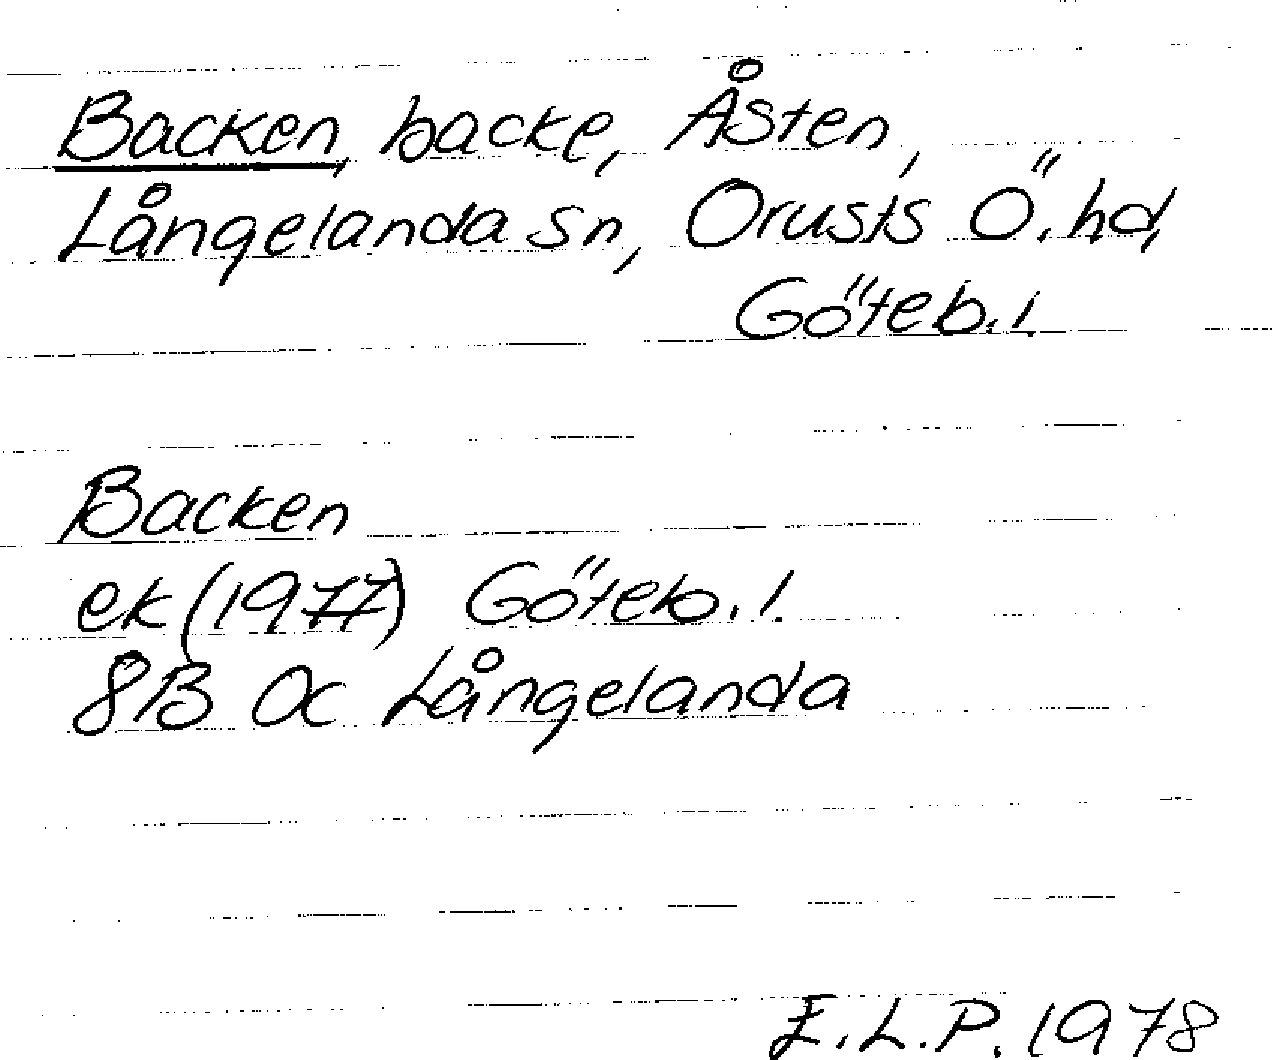 Backen, backe, Åsten,
Långelanda sn, Orusts Ö. hd,
Göteb. l.
Backen
ek (1977) Göteb. l.
8B 0c Långelanda
E.L.P. 1978